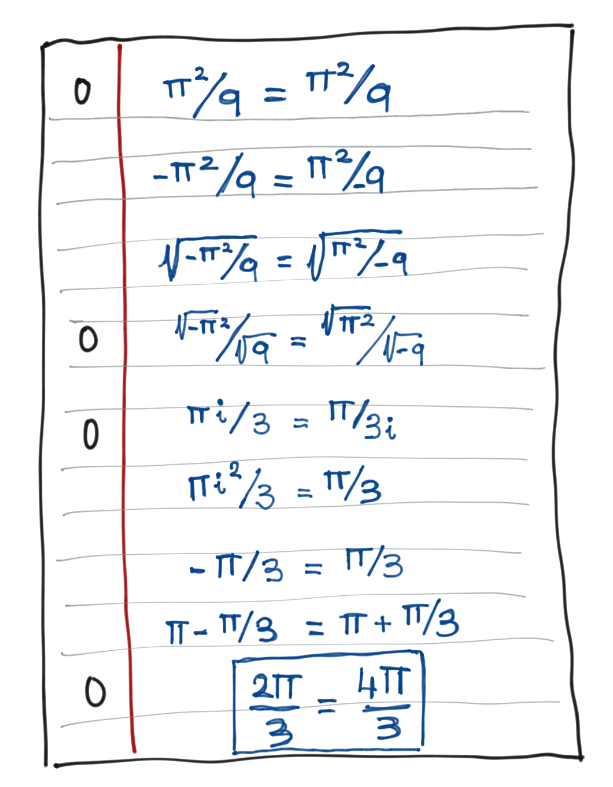 π²/9 = π²/9
-π²/9 = π²/-9
√-π²/9 = √π²/-9
√-π²/√9 = √π²/√-9
πi/3 = π/3i
πi²/3 = π/3
-π/3 = π/3
π - π/3 = π + π/3
2π/3 = 4π/3